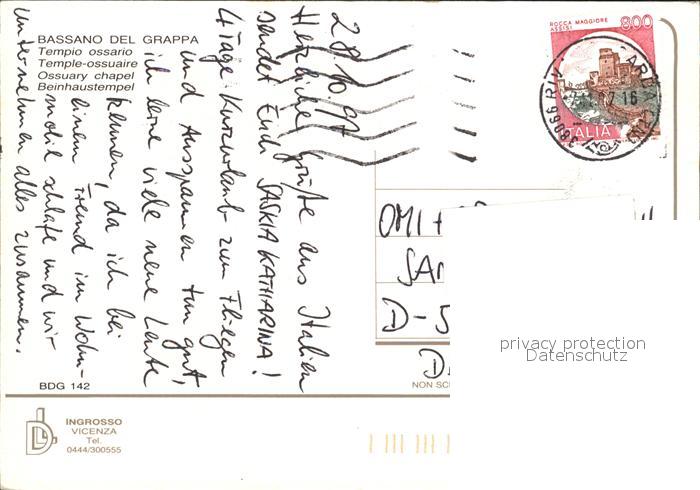 BASSANO DEL GRAPPA
Tempio ossario
Temple-ossuaire
Ossuary chapel
Beinhaustempel
28.10.97
Herzliche Grüße aus Italien
sendet Euch SASKIA KATHARINA!
4 Tage Kurzurlaub zum Fliegen
und Ausspannen tun gut,
ich lerne viele neue Leute
kennen, da ich bei
einem Freund im Wohn-
mobil schlafe und wir
unternehmen alles zusammen.
BDG 142
INGROSSO
VICENZA
Tel.
0444/300555
ROCCA MAGGIORE
ASSISI
800
ITALIA
16
38066 RIV
OMI +
D-5
D
NON SC
privacy protection
Datenschutz